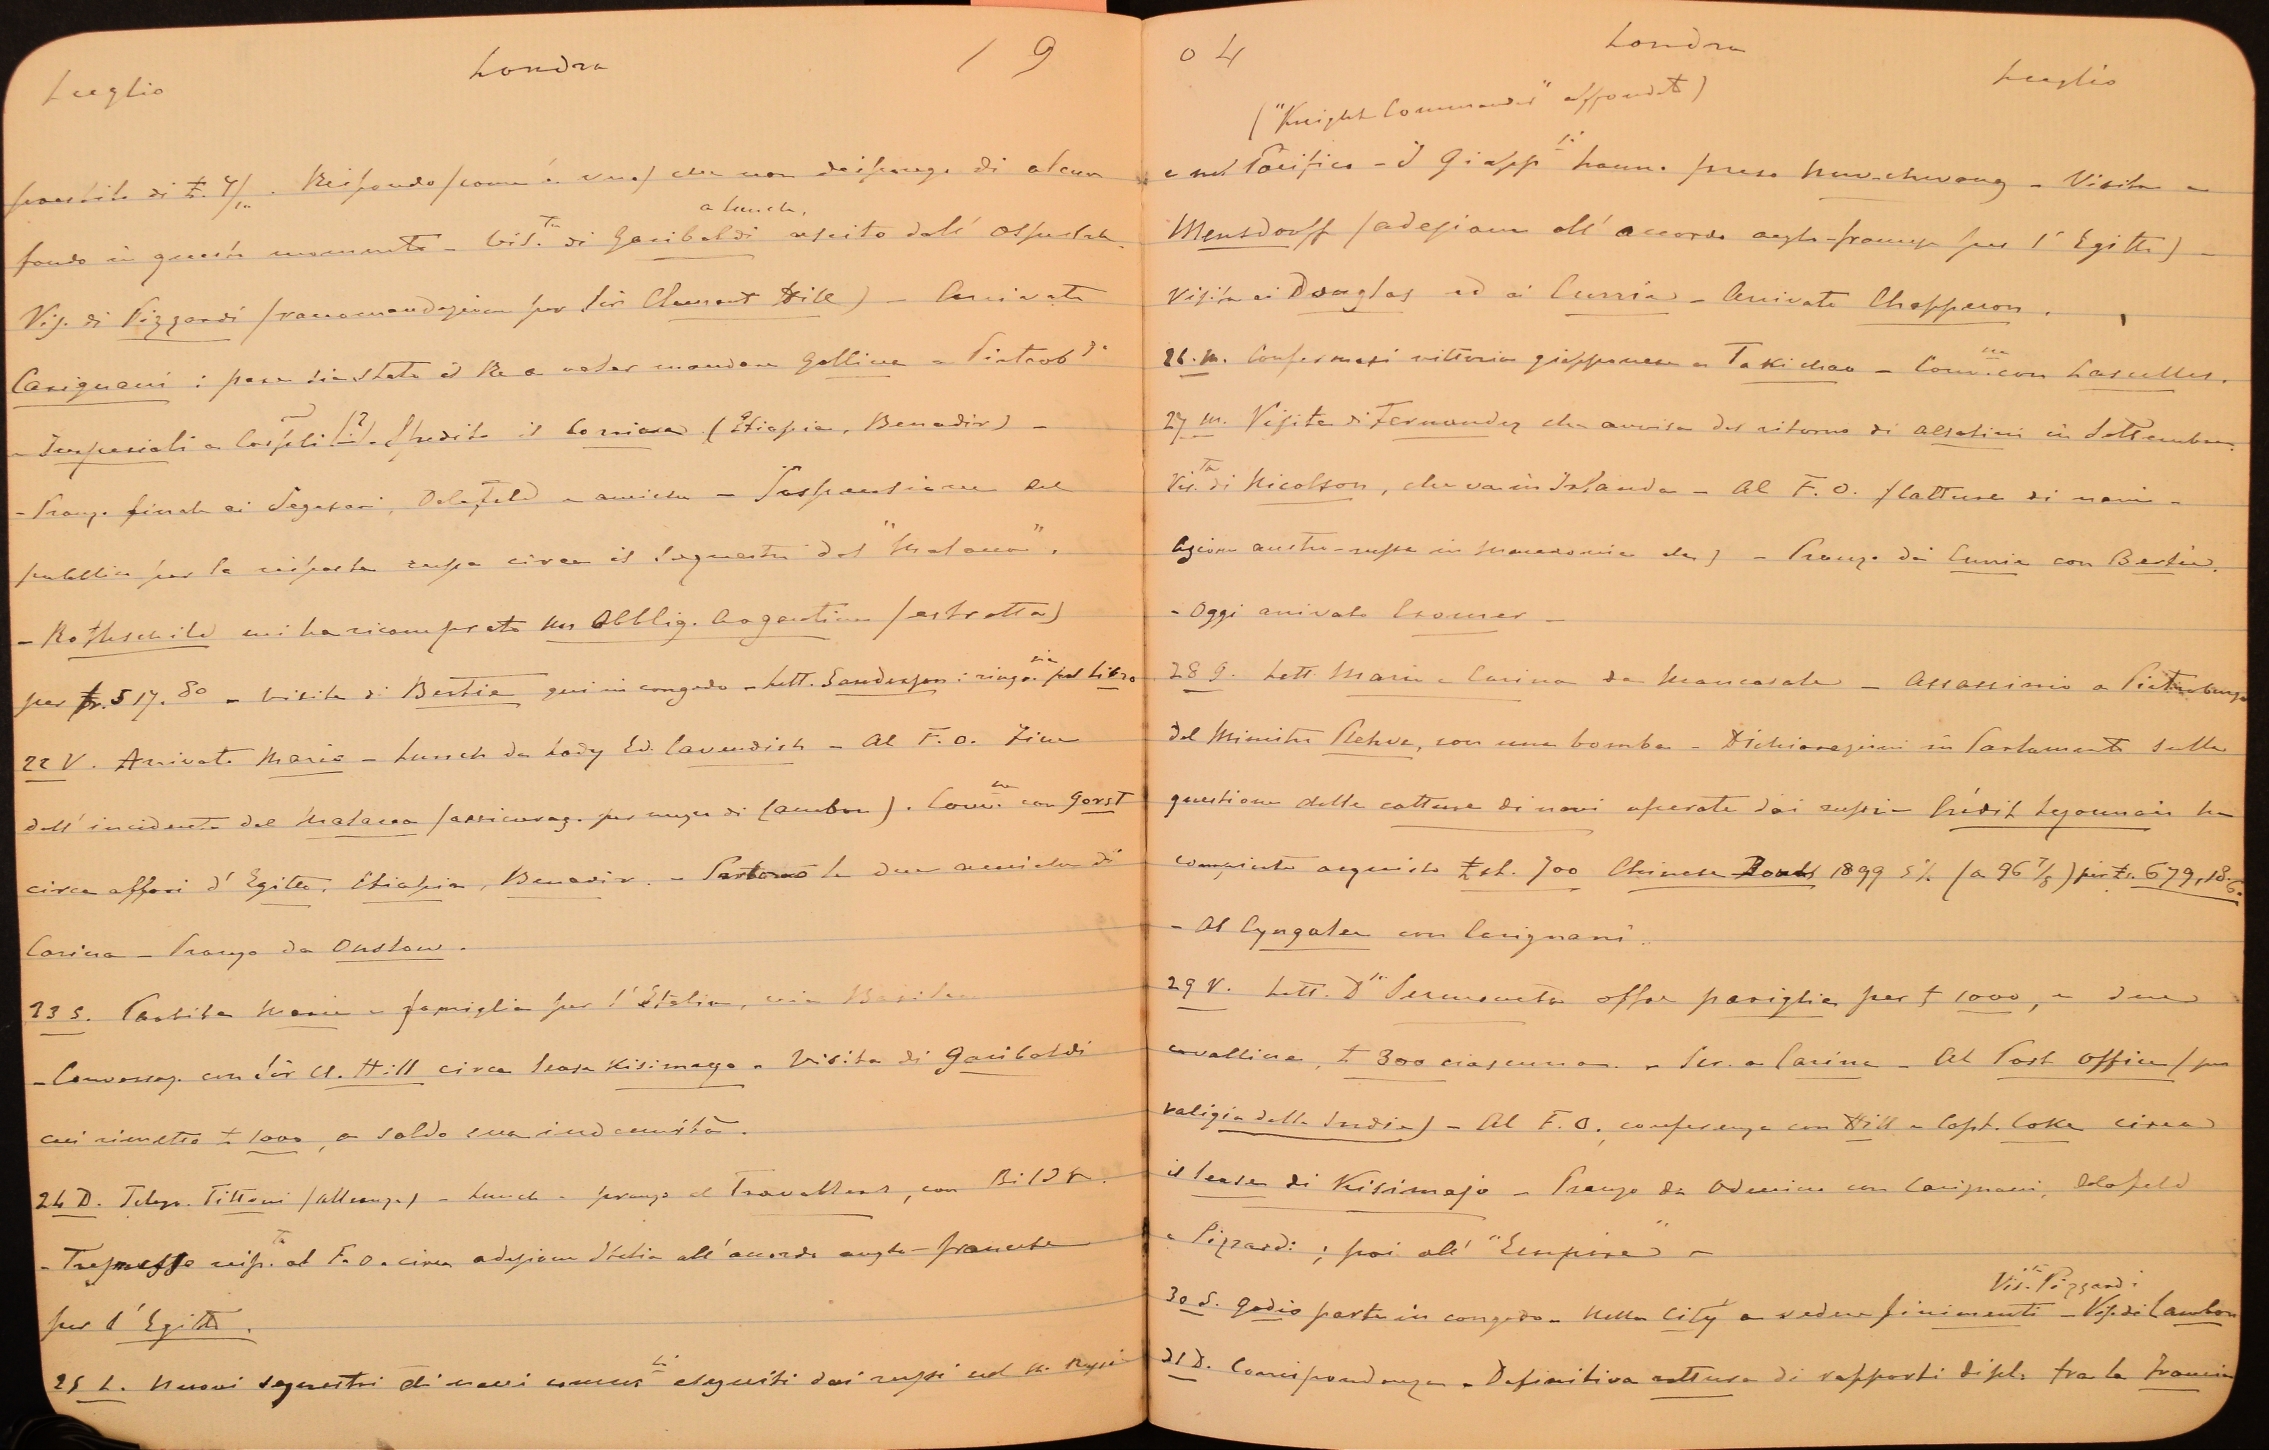 Luglio Londra 19
prestito di £. 4/m. Rispondo (com'è vero) che non dispongo di alcun
fondo in questo momento - Vis.ta di Garibaldi a lunch, uscito dall'ospedale.
Vis. di Pizzardi (raccomandazione per Sir Clement Hill) - Arrivato
Carignani : pare sia stato il Re a voler mandare Gallina a Pietrob.
- Imperiali a (?). Spedito il corriere (Etiopia, Benadir) -
- Pranzo finale ai Segesser, Delafeld e amiche - Sospensione del
pubblico per la risposta russa circa il sequestro del "Malacca".
- Rothschild mi ha ricomprato un Obblig. Argentina (estratta)
per fr. 517.80 - Visita di Bertie qui in congedo - Lett. Sanderson : ringr. pel libro
22 V. Arrivata Maria - Lunch da Lady Ed. Cavendish - Al F.O. Fine
dell'incidente del Malacca (assicuraz. per mezzo di Cambon). Conv.ne con Gorst
circa affari d'Egitto, Etiopia, Benadir. - Partono le due amiche di
Carina - Pranzo da Onslow.
23 S. Partita Maria e famiglia per l'Italia, via Basilea
- Conversaz. con Sir Cl. Hill circa lease Kisimayo - Visita di Garibaldi
cui rimetto £ 1000, a saldo sua indennità.
24 D. Telegr. Tittoni - Lunch e pranzo al Travellers, con Bildt.
- Trasmesso risp.ta al F.O. circa adesione Italia all'accordo anglo-francese
per l'Egitto.
25 L. Nuovi sequestri di navi comm.li eseguiti dai russi nel M. Rosso
04 Londra Luglio
("Knight Commander" affondato)
e nel Pacifico - I Giapp.si hanno preso New-chwang - Visita a
Mensdorff (adesione all'accordo anglo-francese per l'Egitto) -
Visita ai Douglas ed ai Currie - Arrivato Chapperon.
26. M. Confermasi vittoria giapponese a Takichao - Conv.ne con Lascelles.
27 M. Visita di Fernandez che avvisa del ritorno di Alsatini in Settembre.
Vis.ta di Nicolson, che va in Irlanda - Al F.O. (catture di navi -
azione austro-russa in Macedonia etc) - Pranzo dai Currie con Bertie.
- Oggi arrivato Cromer -
28 G. Lett. Maria e Carina da Mancasale - Assassinio a Pietroburgo
del Ministro Plehve, con una bomba - Dichiarazioni in Parlamento sulla
questione delle catture di navi operate dai russi - Crédit Lyonnais ha
compiuto acquisto £st. 700 Chinese Bonds 1899 5% (a 96 7/8) per £s. 679,18.6.
- Al Lyngalee con Carignani.
29 V. Lett. D.sa Sermoneta offre pariglia per £ 1000, e due
cavalline, £ 300 ciascuna. - Scr. a Carina - Al Post Office (per
valigia delle Indie) - Al F.O., conferenza con Hill e Capt. Coke circa
il lease di Kisimajo - Pranzo da Odenino con Carignani, Delafeld
e Pizzardi ; poi all'"Empire" -
30 S. Godio parte in congedo - Nella City a vedere finimenti - Vis. Pizzardi - Vis. di Cambon
31 D. Corrispondenza - Definitiva rottura di rapporti dipl. fra la Francia